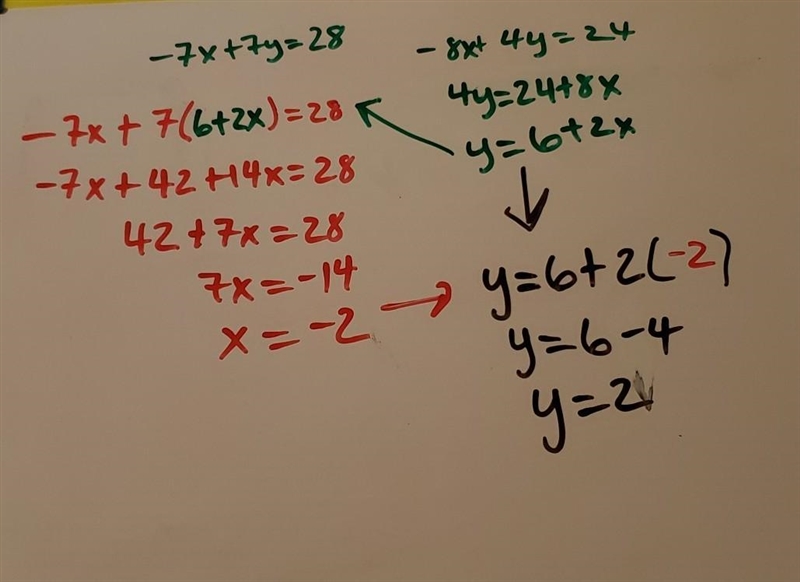 -7x+7y=28
-8x+4y=24
4y=24+8x
y=6+2x
-7x+7(6+2x)=28
-7x+42+14x=28
42+7x=28
7x=-14
x=-2
y=6+2(-2)
y=6-4
y=2